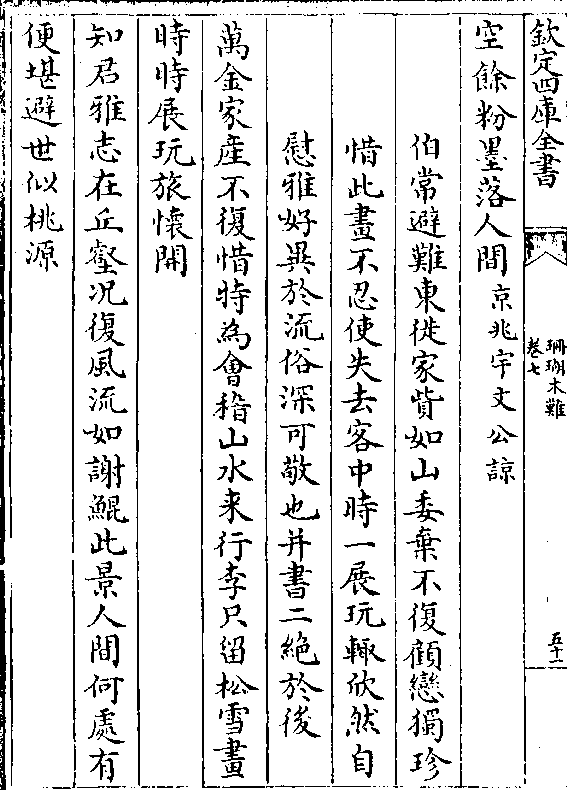 欽定四庫全書
珊瑚木難
卷七
五十一
空餘粉墨落人間京兆宇文公諒
伯常避難東徙家貲如山委棄不復顧戀獨珍
惜此畫不忍使失去客中時一展玩輒欣然自
慰雅好異於流俗深可敬也并書二絶於後
萬金家産不復惜特為會稽山水来行李只留松雪畫
時時展玩旅懷開
知君雅志在丘壑况復風流如謝鯤此景人間何處有
便堪避世似桃源